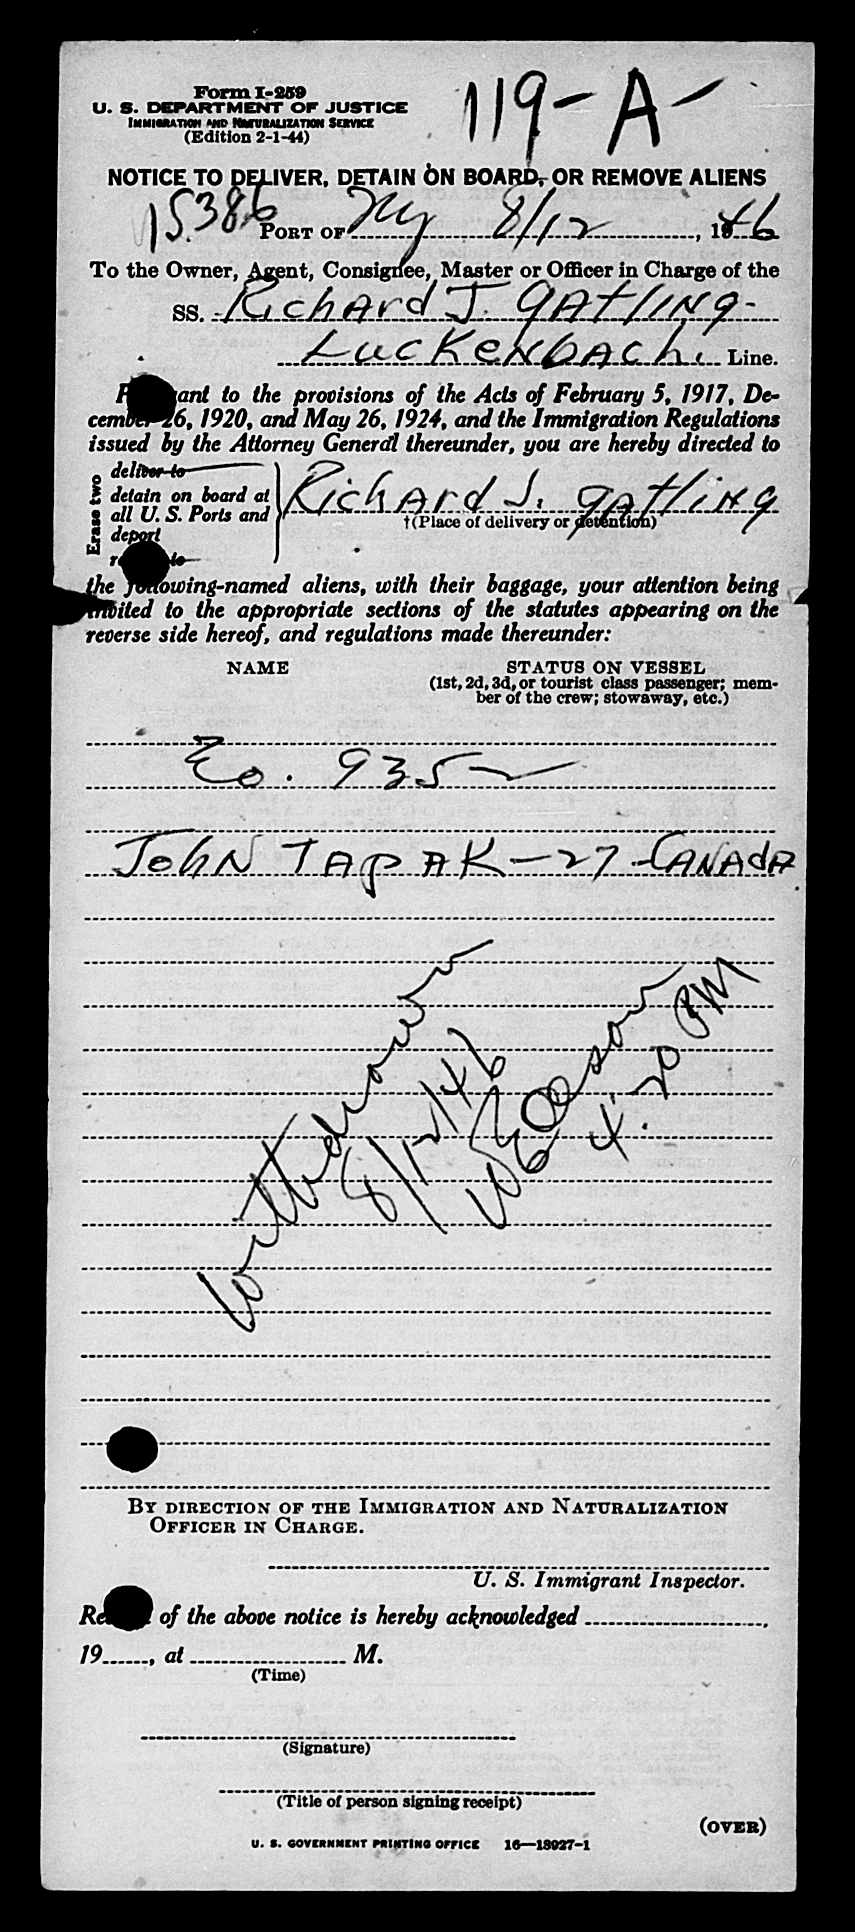 Form I-259
U. S. DEPARTMENT OF JUSTICE
IMMIGRATION AND NATURALIZATION SERVICE
(Edition 2-1-44)
119-A-
NOTICE TO DELIVER, DETAIN ON BOARD, OR REMOVE ALIENS
15386
PORT OF NY 8/12, 1946
To the Owner, Agent, Consignee, Master or Officer in Charge of the
SS. Richard J. Gatling-
Luckenbach. Line.
P ant to the provisions of the Acts of February 5, 1917, De-
cember 26, 1920, and May 26, 1924, and the Immigration Regulations
issued by the Attorney General thereunder, you are hereby directed to
Erase two
deliver to
detain on board at
all U. S. Ports and
deport
Richard J. Gatling
†(Place of delivery or detention)
the following-named aliens, with their baggage, your attention being
invited to the appropriate sections of the statutes appearing on the
reverse side hereof, and regulations made thereunder:
NAME
STATUS ON VESSEL
(1st, 2d, 3d, or tourist class passenger; mem-
ber of the crew; stowaway, etc.)
Eo. 9352
John TAPAK - 27 - CANAdA
Withdrawn
8/12/46
4:20 PM
BY DIRECTION OF THE IMMIGRATION AND NATURALIZATION
OFFICER IN CHARGE.
U. S. Immigrant Inspector.
Re of the above notice is hereby acknowledged ,
19 , at M.
(Time)
(Signature)
(Title of person signing receipt)
(OVER)
U. S. GOVERNMENT PRINTING OFFICE 16—18927-1